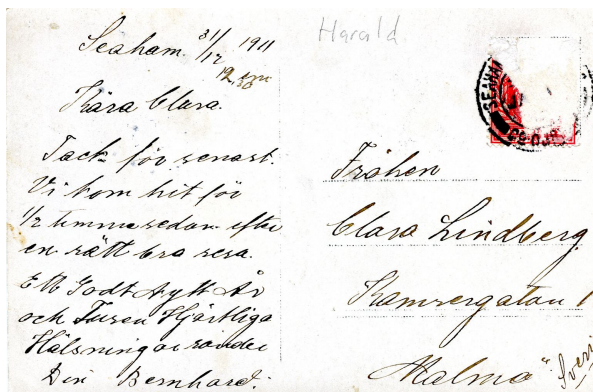 Seaham. 31/12 1911
12,30 em
Harald
Kära Clara.
Tack för senast.
Vi kom hit för
1/2 timma sedan efter
en rätt bra resa.
Ett Godt Nytt År
och Tusen Hjärtliga
Hälsningar sänder
Din Bernhard.
SEAHA
Fröken
Clara Lindberg
1
Malmö
Sveri